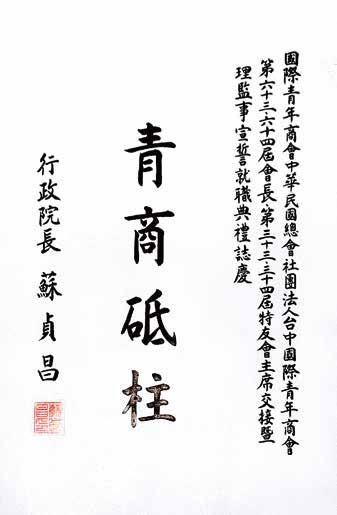 國際青年商會中華民國總會社團法人台中國際青年商會
第六十三、六十四屆會長、第三十三、三十四屆特友會主席交接暨
理監事宣誓就職典禮誌慶
青商砥柱
行政院長 蘇貞昌